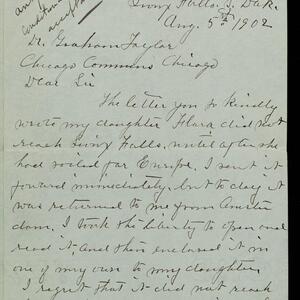 Sioux Falls, S. Dak.
Aug. 5th 1902
Dr. Graham Taylor
Chicago Commons Chicago
Dear Sir
The letter you so kindly
wrote my daughter Flora did not
reach Sioux Falls, until after she
had sailed for Europe. I sent it
forward immediately, but to day it
was returned to me from Amster
dam. I took the liberty to open and
read it, and then enclosed it in
one of my own to my daughter.
I regret that it did not reach